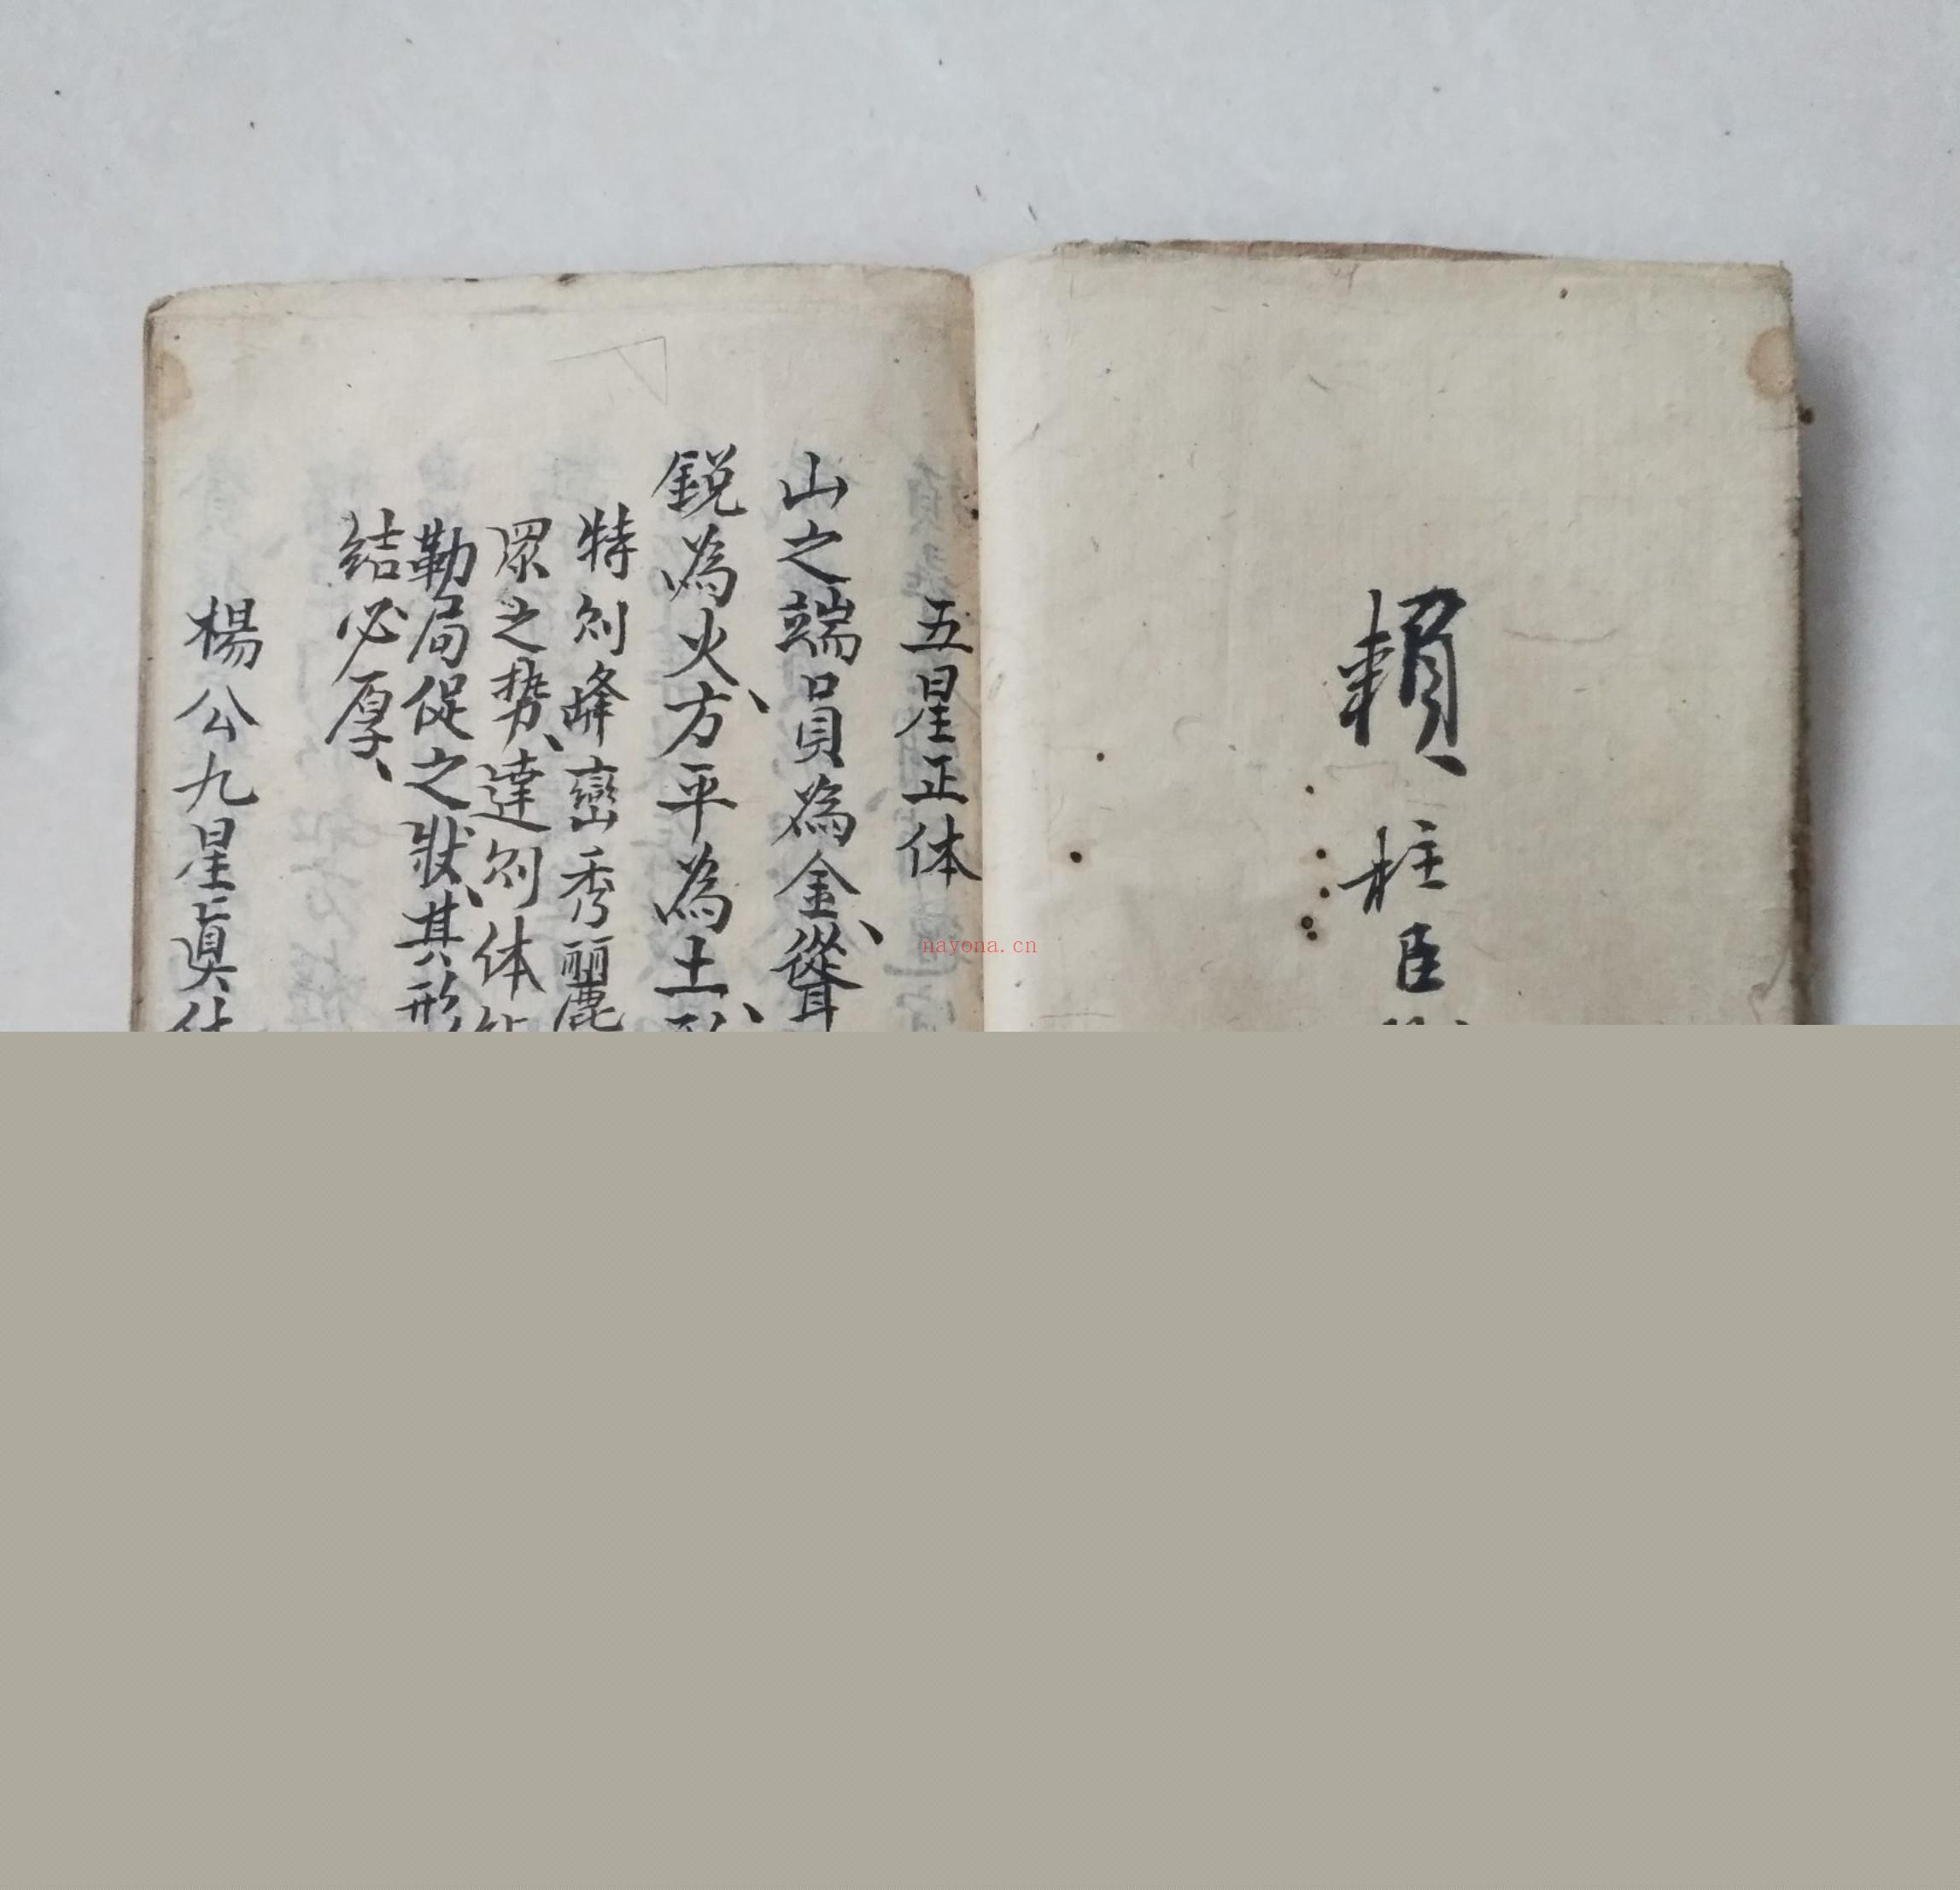 賴
柱臣
五星正体
山之端員為金、聳
銳為火、方平為土、
特則峰巒秀麗
眾之勢、達則体
勒局促之狀、其形
結必厚、
楊公九星真体
nayona.cn